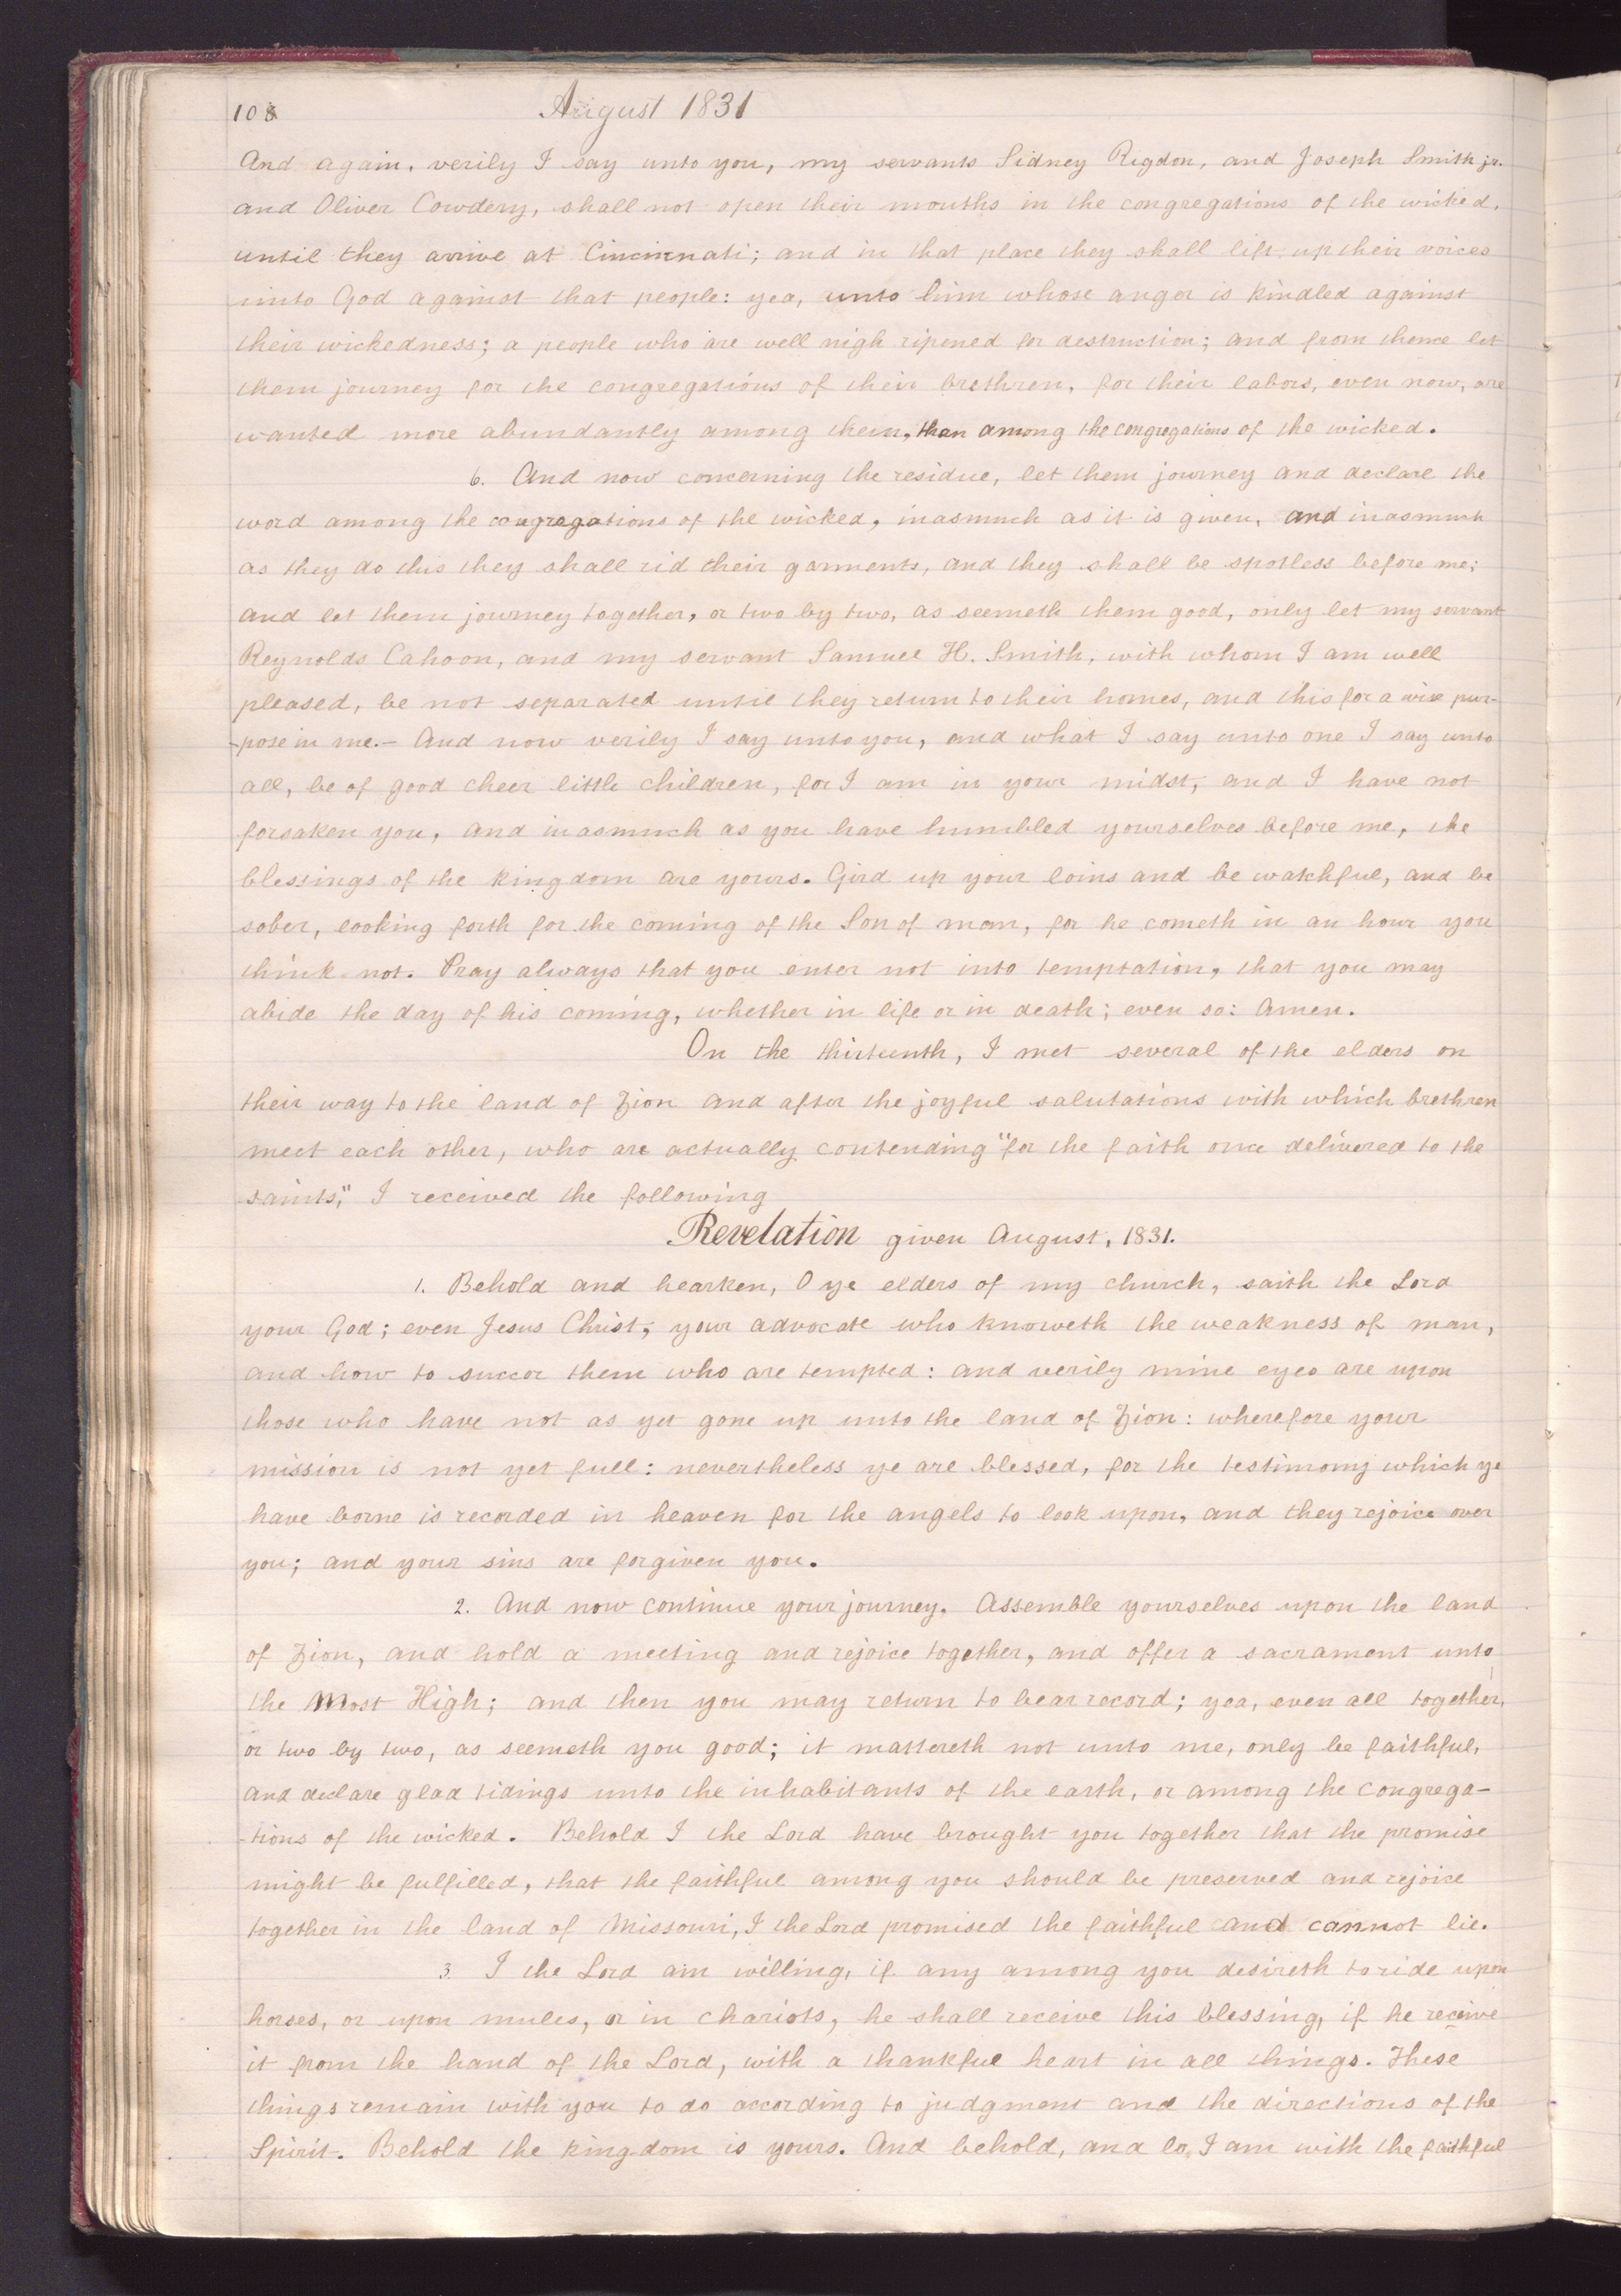 108
August 1831
And again, verily I say unto you, my servants Sidney Rigdon, and Joseph Smith jr.
and Oliver Cowdery, shall not open their mouths in the congregations of the wicked,
until they arrive at Cincinnati; and in that place they shall lift up their voices
unto God against that people: yea, unto him whose anger is kindled against
their wickedness; a people who are well nigh ripened for destruction; and from thence let
them journey for the congregations of their brethren, for their labors, even now, are
wanted more abundantly among them, than among the congregations of the wicked.
6. And now concerning the residue, let them journey and declare the
word among the congregations of the wicked, inasmuch as it is given, and inasmuch
as they do this they shall rid their garments, and they shall be spotless before me;
and let them journey together, or two by two, as seemeth them good, only let my servant
Reynolds Cahoon, and my servant Samuel H. Smith, with whom I am well
pleased, be not separated until they return to their homes, and this for a wise pur-
-pose in me.- And now verily I say unto you, and what I say unto one I say unto
all, be of good cheer little children, for I am in your midst, and I have not
forsaken you, and inasmuch as you have humbled yourselves before me, the
blessings of the kingdom are yours. Gird up your loins and be watchful, and be
sober, looking forth for the coming of the Son of man, for he cometh in an hour you
think not. Pray always that you enter not into temptation, that you may
abide the day of his coming, whether in life or in death; even so: Amen.
On the thirteenth, I met several of the elders on
their way to the land of Zion and after the joyful salutations with which brethren
meet each other, who are actually contending "for the faith once delivered to the
saints," I received the following
Revelation given August, 1831.
1. Behold and hearken, O ye elders of my church, saith the Lord
your God; even Jesus Christ, your advocate who knoweth the weakness of man,
and how to succor them who are tempted: and verily mine eyes are upon
those who have not as yet gone up unto the land of Zion: wherefore your
mission is not yet full: nevertheless ye are blessed, for the testimony which ye
have borne is recorded in heaven for the angels to look upon, and they rejoice over
you; and your sins are forgiven you.
2. And now continue your journey. Assemble yourselves upon the land
of Zion, and hold a meeting and rejoice together, and offer a sacrament unto
the Most High; and then you may return to bear record; yea, even all together,
or two by two, as seemeth you good; it mattereth not unto me, only be faithful,
and declare glad tidings unto the inhabitants of the earth, or among the congrega-
-tions of the wicked. Behold I the Lord have brought you together that the promise
might be fulfilled, that the faithful among you should be preserved and rejoice
together in the land of Missouri, I the Lord promised the faithful and cannot lie.
3. I the Lord am willing, if any among you desireth to ride upon
horses, or upon mules, or in chariots, he shall receive this blessing, if he receive
it from the hand of the Lord, with a thankful heart in all things. These
things remain with you to do according to judgment and the directions of the
Spirit. Behold the kingdom is yours. And behold, and lo, I am with the faithful